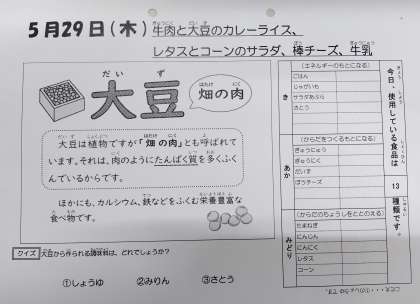 5月29日(木)牛肉と大豆のカレーライス、
レタスとコーンのサラダ、棒チーズ、牛乳
だい ず
大豆
はたけ にく
畑の肉
大豆は植物ですが「畑の肉」とも呼ばれて
います。それは、肉のようにたんぱく質を多くふく
んでいるからです。
ほかにも、カルシウム、鉄などをふくむ栄養豊富な
食べ物です。
クイズ 大豆から作られる調味料は、どれでしょうか?
①しょうゆ ②みりん ③さとう
今日、使用している食品は
13
種類です。
き
(エネルギーのもとになる)
ごはん
じゃがいも
サラダあぶら
さとう
あか
(からだをつくるもとになる)
ぎゅうにく
だいず
ぼうチーズ
みどり
(からだのちょうしをととのえる)
たまねぎ
にんじん
にんにく
レタス
コーン